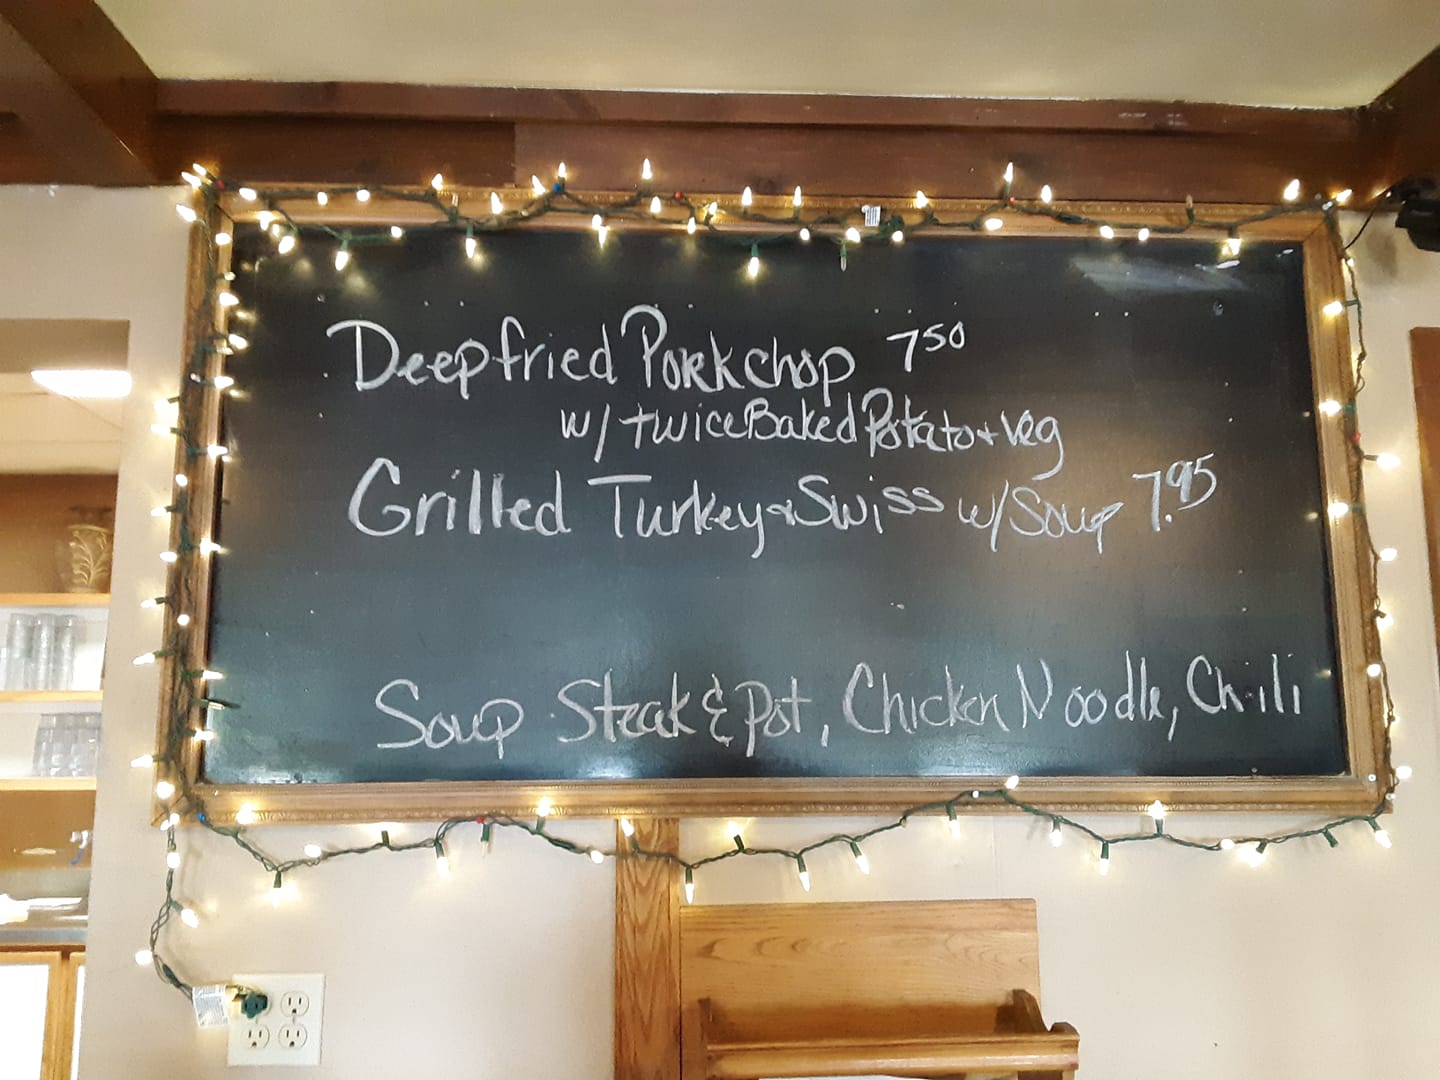 Deep fried Porkchop 7 50
w/ twice Baked Potato + Veg
Grilled Turkey & Swiss w/ Soup 7.95
Soup Steak & Pot, Chicken Noodle, Chili